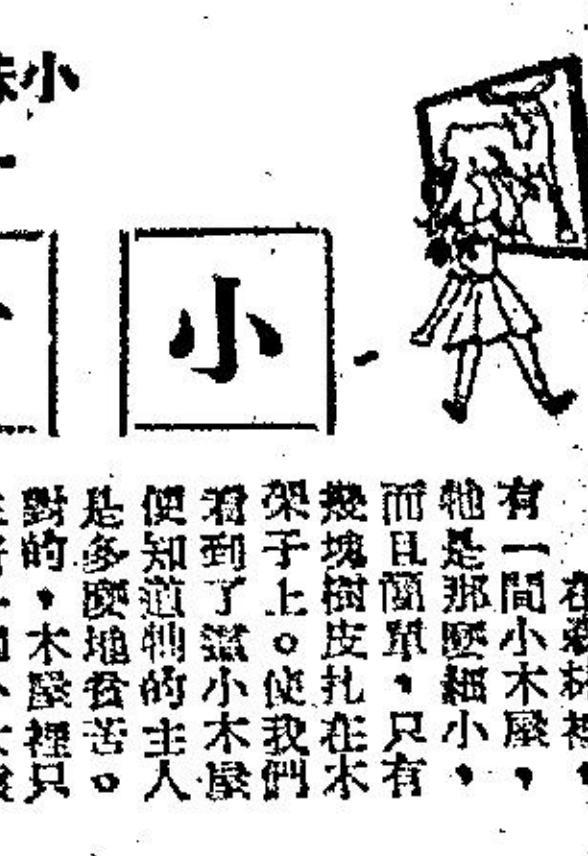 小
小
在森林裡，
有一間小木屋，
牠是那麼細小，
而且簡單，只有
幾塊樹皮扎在木
架子上。使我們
看到了這小木屋
便知道牠的主人
是多麼地貧苦。
對的，木屋裡只